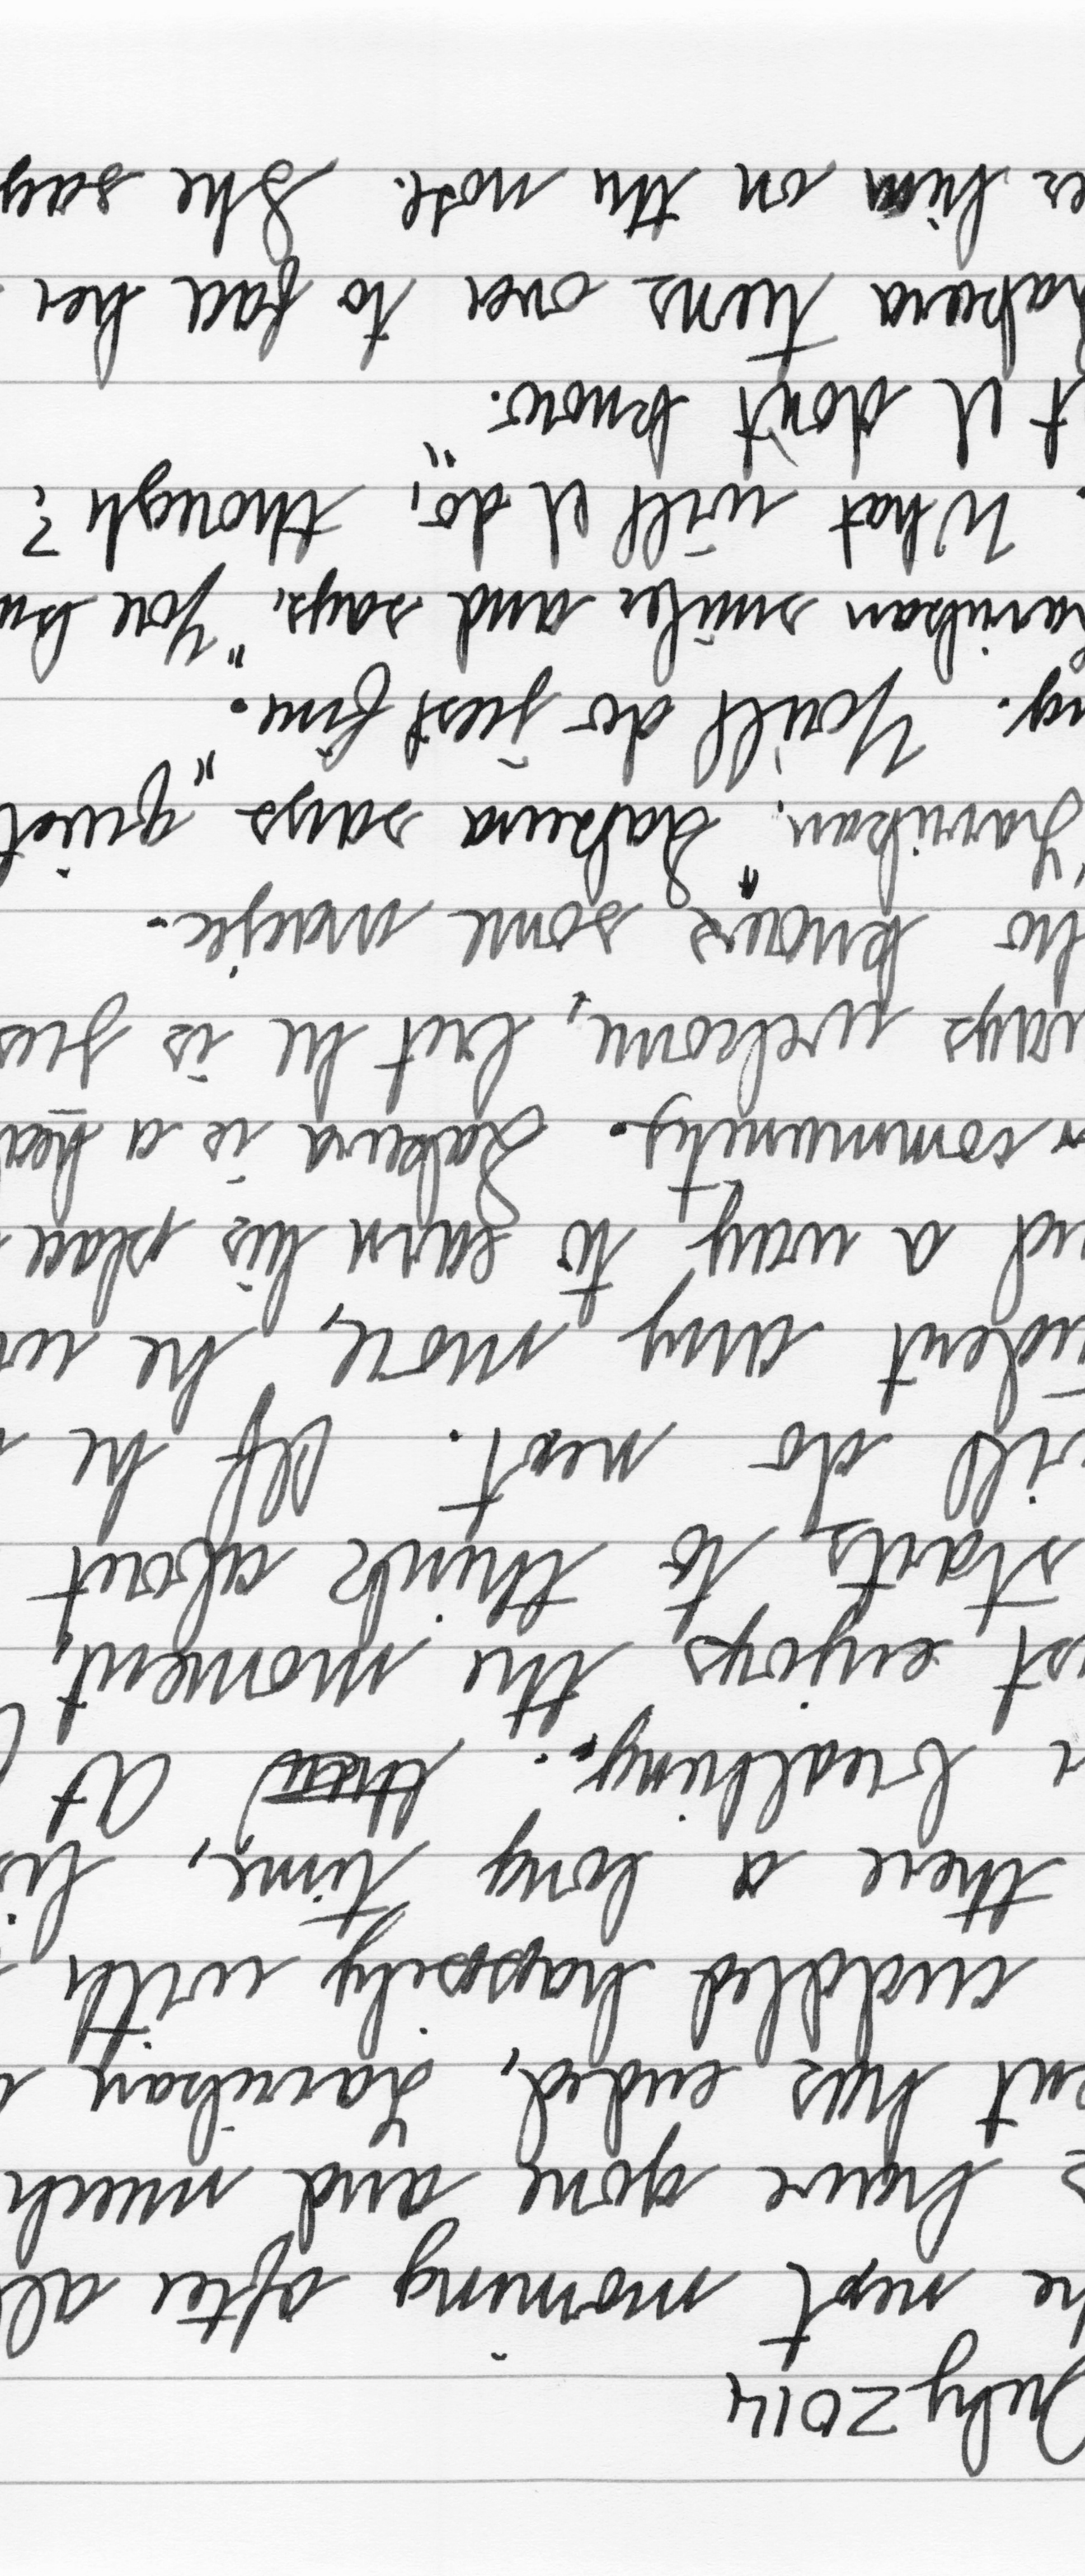 July 2014
he next morning after al
s have gone and much
ent has ended, Larrikan
cuddled happily with
there a long time, lis
r breathing. At f
st enjoys the moment,
starts to think about
will do next. If he
udent any more, he wo
nd a way to earn his place
r community. Sakura is a hea
ways welcome, but he is jus
ho knows some magic.
"Larrikan," Sakura says quiet
ng. "You'll do just fine."
arrikan smiles and says, "You kn
. What will I do, though?
t I don't know."
akura turns over to face her
es him on the nose. She say